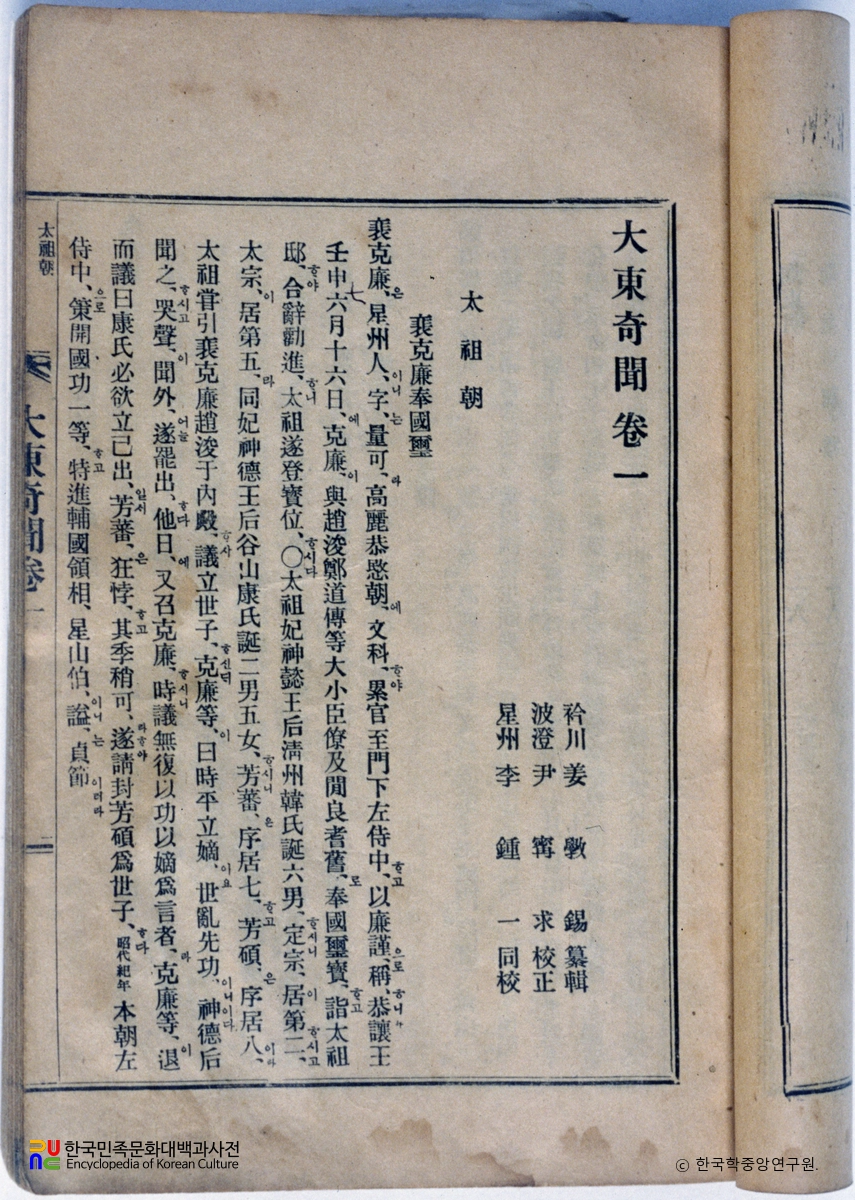 大東奇聞卷一
衿川 姜 斅 錫 纂輯
波澄 尹 甯 求 校正
星州 李 鍾 一 同校
太祖朝
裵克廉奉國璽
裵克廉은、星州人、이니字는、量可、라高麗恭愍朝、에文科、ᄒᆞ야累官至門下左侍中、ᄒᆞ고以廉謹、으로稱、ᄒᆞ니恭讓王
壬申六月十六日、에克廉、이與趙浚鄭道傳等大小臣僚及閒良耆舊、로奉國璽寶、ᄒᆞ고詣太祖
七
邸、ᄒᆞ야合辭勸進、ᄒᆞ니太祖遂登寶位、ᄒᆞ시다〇太祖妃神懿王后淸州韓氏誕六男、ᄒᆞ시니定宗、이居第二、ᄒᆞ시고
太宗、이居第五、라同妃神德王后谷山康氏誕二男五女、ᄒᆞ시니芳蕃、은序居七、ᄒᆞ고芳碩、은序居八、이라
太祖甞引裵克廉趙浚于內殿、ᄒᆞ사議立世子、ᄒᆞ신ᄃᆡ克廉等、이曰時平立嫡、이요世亂先功、이니이다神德后
聞之、ᄒᆞ시고哭聲、이聞外、어늘遂罷出、ᄒᆞ다他日、에又召克廉、ᄒᆞ시니時議無復以功以嫡爲言者、라克廉等、이退
而議曰康氏必欲立己出、일ᄉᆡ芳蕃、은狂悖、ᄒᆞ고其季稍可、라ᄒᆞ야遂請封芳碩爲世子、ᄒᆞ다昭代紀年本朝左
侍中、으로策開國功一等、ᄒᆞ고特進輔國領相、星山伯、이니謚는、貞節이러라
太祖朝
大東奇聞卷一
한국민족문화대백과사전
Encyclopedia of Korean Culture
© 한국학중앙연구원.